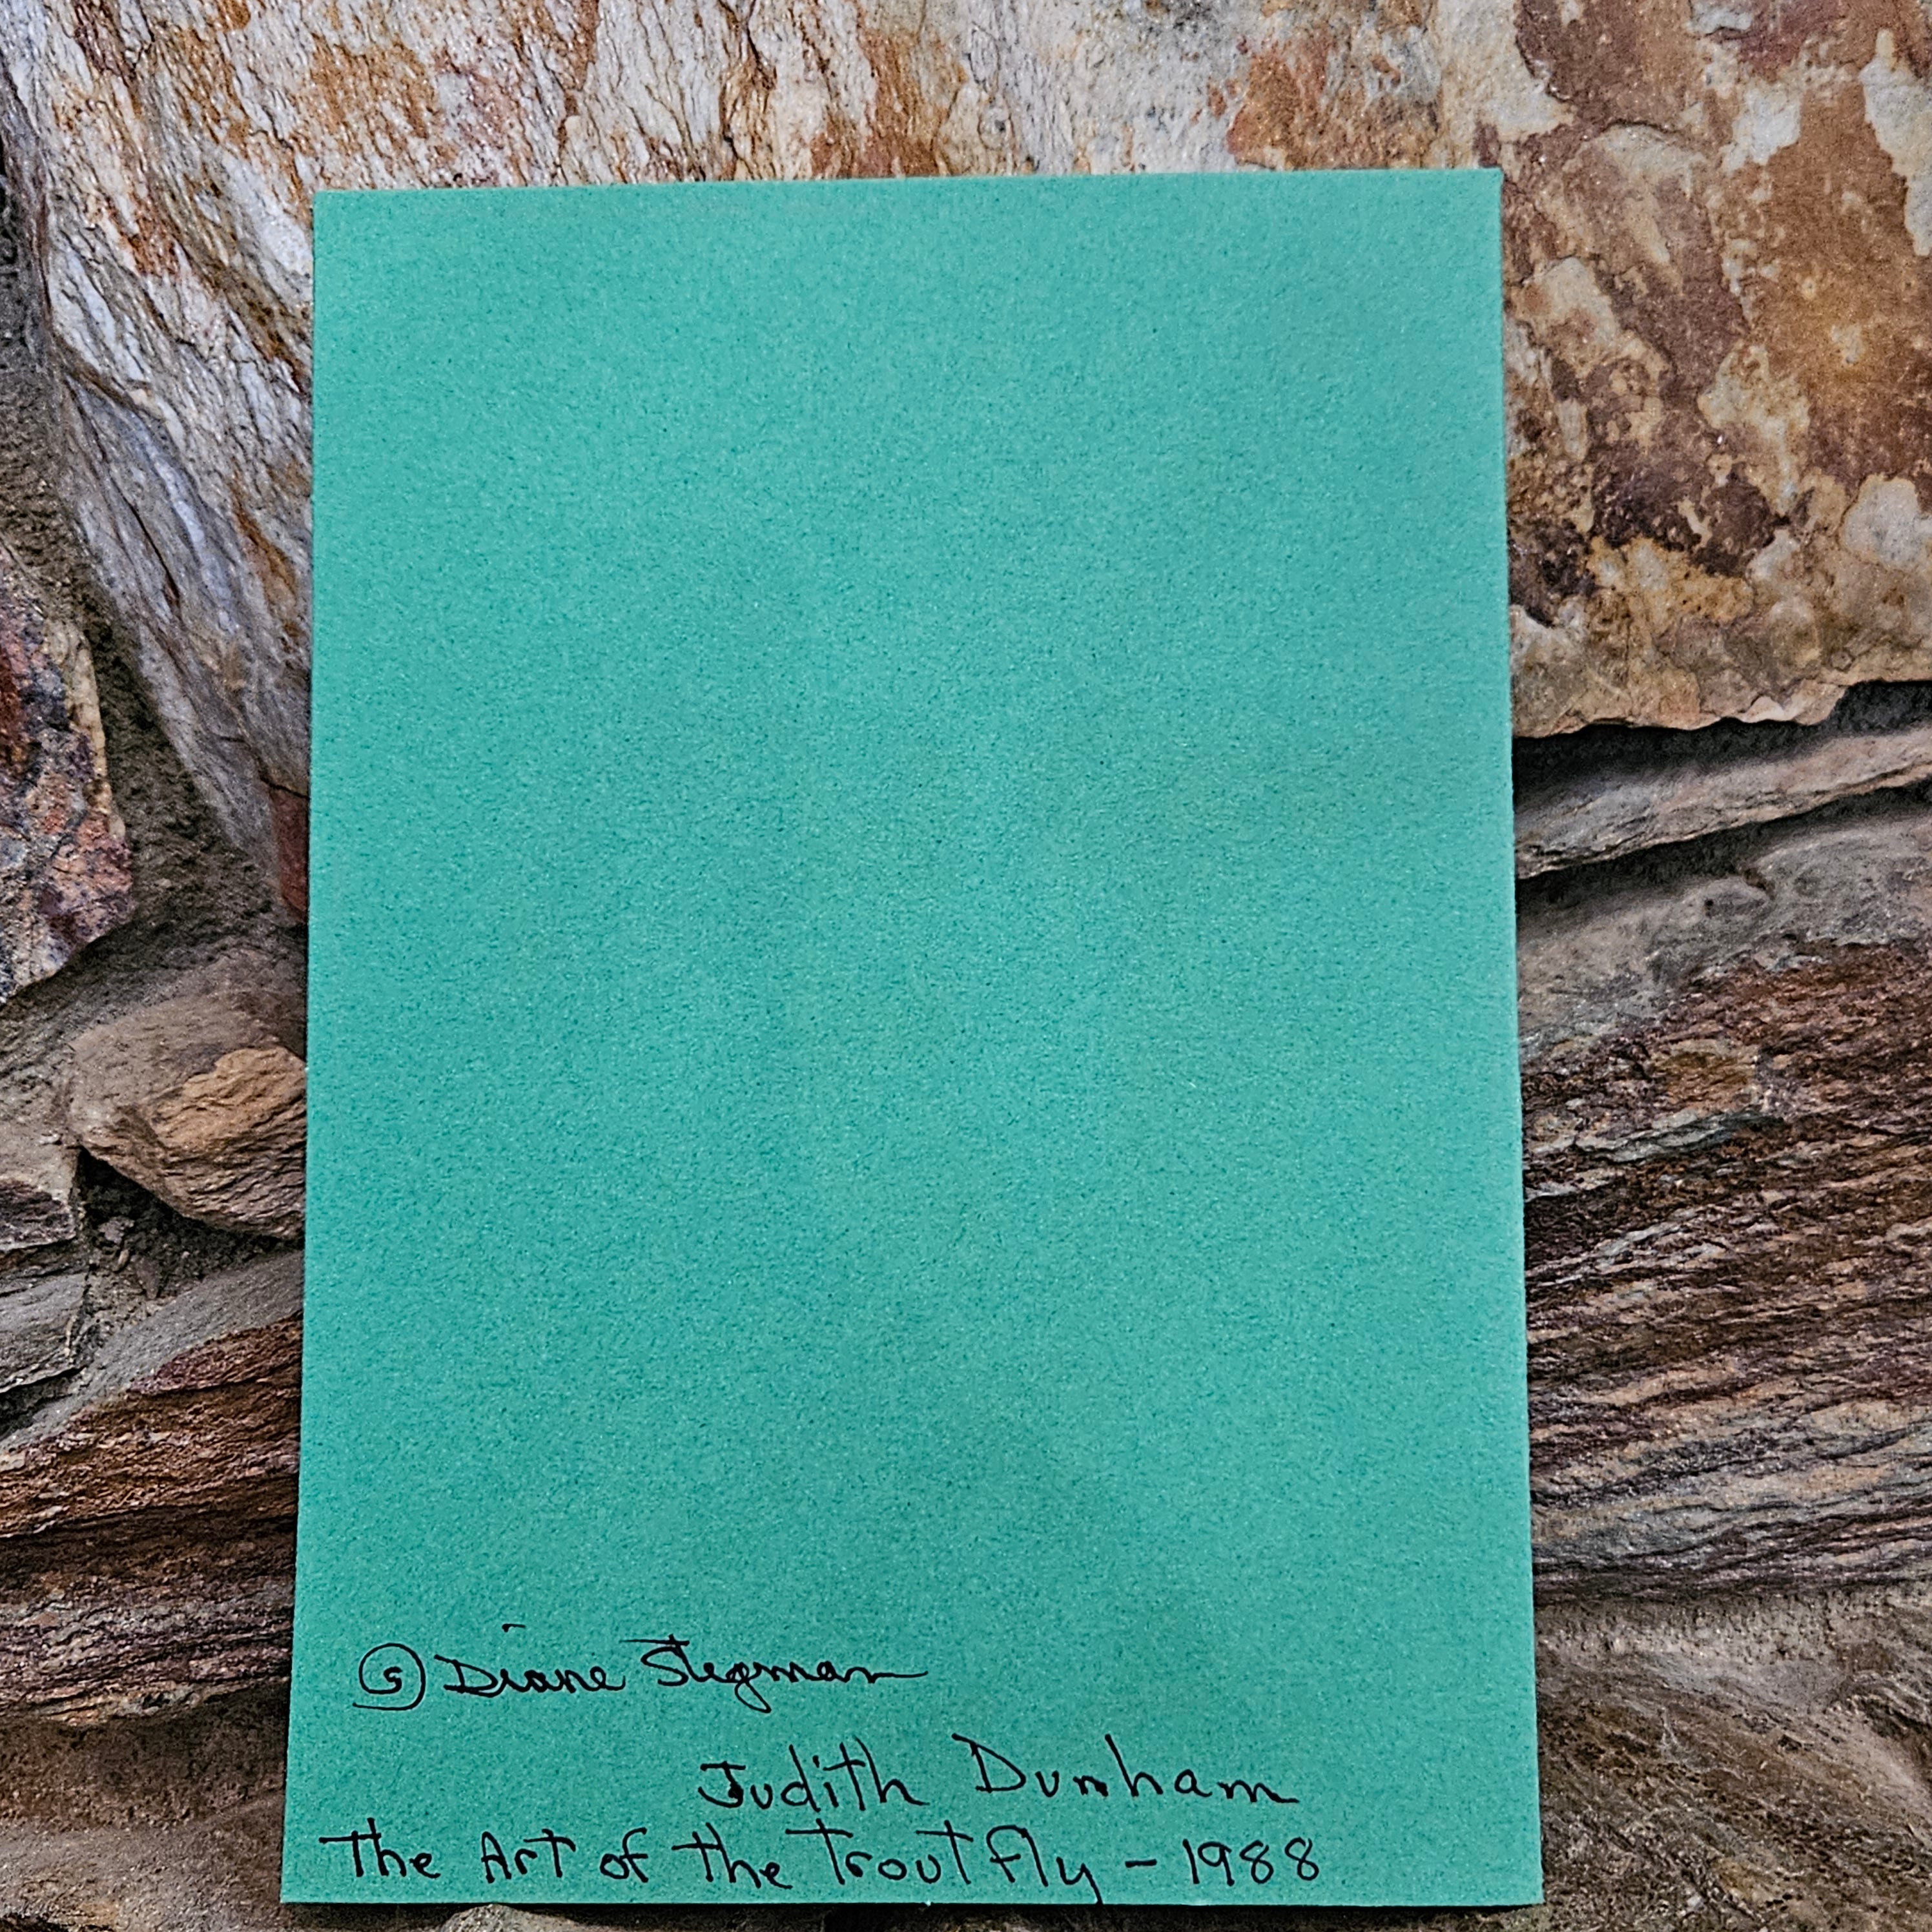 Ⓢ Diane Stegman
Judith Dunham
The Art of the Trout fly - 1988